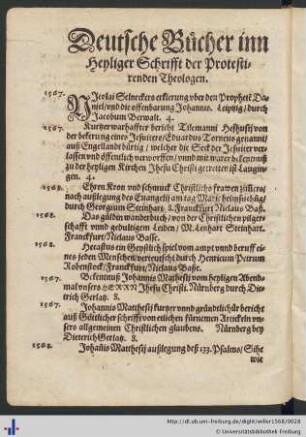 Deutsche Bücher inn
Heyliger Schrifft der Protesti-
renden Theologen.
1567.
Nicolai Selneckers erklerung vber den Propheten Da-
niel/vnd die offenbarung Johannis. Leipzig/durch
Jacobum Berwalt. 4.
1567.
Kurtzer warhaffter bericht Tilemanni Heshusij/von
der bekerung eines Jesuiters/Eduardus Tornens genannt/
auß Engellandt bürtig/welcher die Sect der Jesuiter ver-
lassen vnd öffentlich verworffen/vnnd mit warer bekentnuß
zu der heyligen Kirchen Jhesu Christi getretten ist Laugin-
gen. 4.
1568.
Ehren Kron vnd schmuck Christlicher frawen zillers/
nach außlegung des Euangelij am tag Marie heimsuchūg/
durch Georgium Steinhart. 8. Franckfurt Niclaus Baß.
1568.
Das gülden wanderbuch/von der Christlichen pilger-
schafft vnnd gedultigem Leiden/M. Lenhart Steinhart.
Franckfurt/Niclaus Basse.
1568.
Hecastus ein Geystlich spiel vom ampt vnnd beruff ei-
nes jeden Menschen/verteuscht durch Henricum Petrum
Rebenstock/Franckfurt/Niclaus Baß.
1567.
Bekentnuß Johannis Mathesij vom heyligen Abend-
mal vnsers HERRN Jhesu Christi. Nürnberg durch Die-
trich Gerlatz. 8.
1567.
Johannis Matthesij kurtzer vnnd gründtlicher bericht
auß Göttlicher schrifft/von etlichen fürnemen Artickeln vn-
sers allgemeinen Christlichen glaubens. Nürnberg bey
Dieterich Gerlatz. 8.
1568.
Johañis Matthesij außlegung deß 133. Psalms/Sihe
wie
http://dl.ub.uni-freiburg.de/diglit/willer1568/0028
© Universitätsbibliothek Freiburg